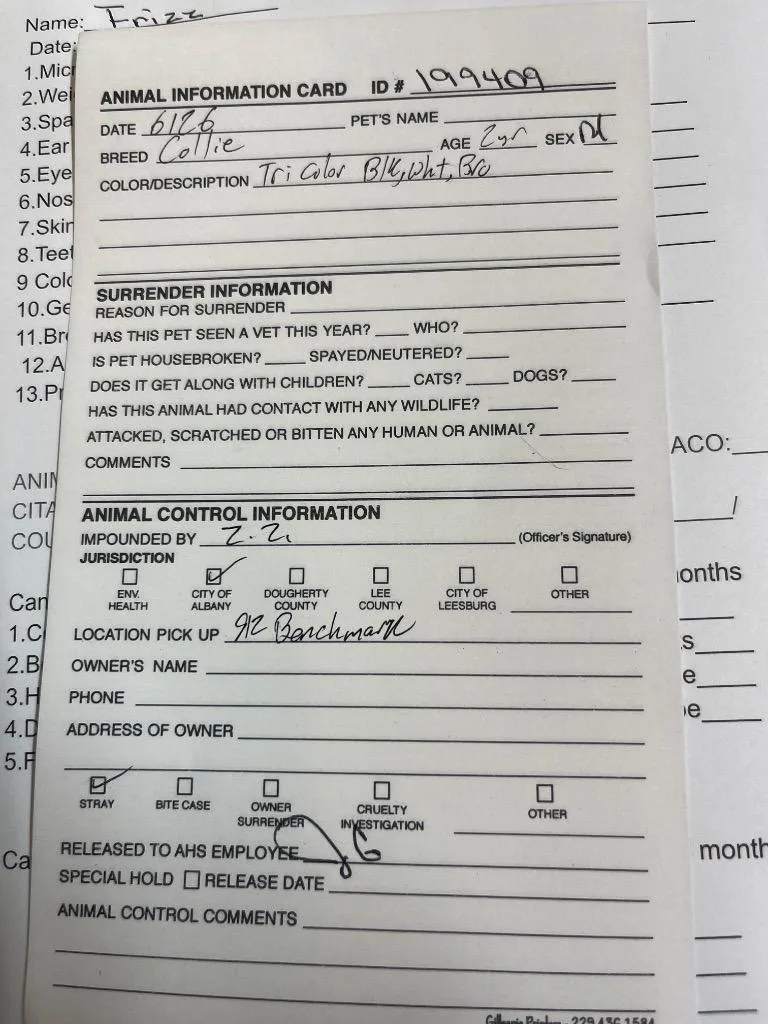 Name: Frizz
Date:
1.Mic
2.Wei
3.Spa
4.Ear
5.Eye
6.Nos
7.Skin
8.Teet
9 Colo
10.Ge
11.Br
12.A
13.Pr
ANIM
CITA
COU
Can
1.C
2.B
3.H
4.D
5.F
Ca
ANIMAL INFORMATION CARD ID # 199409
DATE 6126 PET'S NAME
BREED Collie AGE 2yr SEX M
COLOR/DESCRIPTION Tri Color Blk, Wht, Bro
SURRENDER INFORMATION
REASON FOR SURRENDER
HAS THIS PET SEEN A VET THIS YEAR? WHO?
IS PET HOUSEBROKEN? SPAYED/NEUTERED?
DOES IT GET ALONG WITH CHILDREN? CATS? DOGS?
HAS THIS ANIMAL HAD CONTACT WITH ANY WILDLIFE?
ATTACKED, SCRATCHED OR BITTEN ANY HUMAN OR ANIMAL?
COMMENTS
ANIMAL CONTROL INFORMATION
IMPOUNDED BY Z.Z. (Officer's Signature)
JURISDICTION
ENV. HEALTH CITY OF ALBANY DOUGHERTY COUNTY LEE COUNTY CITY OF LEESBURG OTHER
LOCATION PICK UP 912 Benchmark
OWNER'S NAME
PHONE
ADDRESS OF OWNER
STRAY BITE CASE OWNER SURRENDER CRUELTY INVESTIGATION OTHER
RELEASED TO AHS EMPLOYEE
SPECIAL HOLD RELEASE DATE
ANIMAL CONTROL COMMENTS
229.436.1584
ACO:
/
onths
s
e
e
month